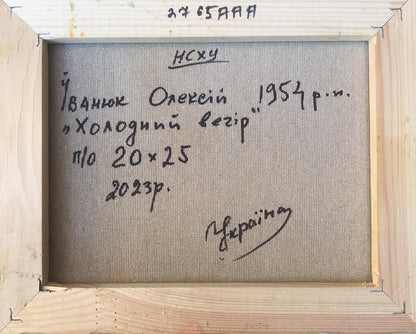 2765ААА
НСХУ
Іванюк Олексій 1954 р.н.
"Холодний вечір"
п/о 20×25
2023р.
Україна